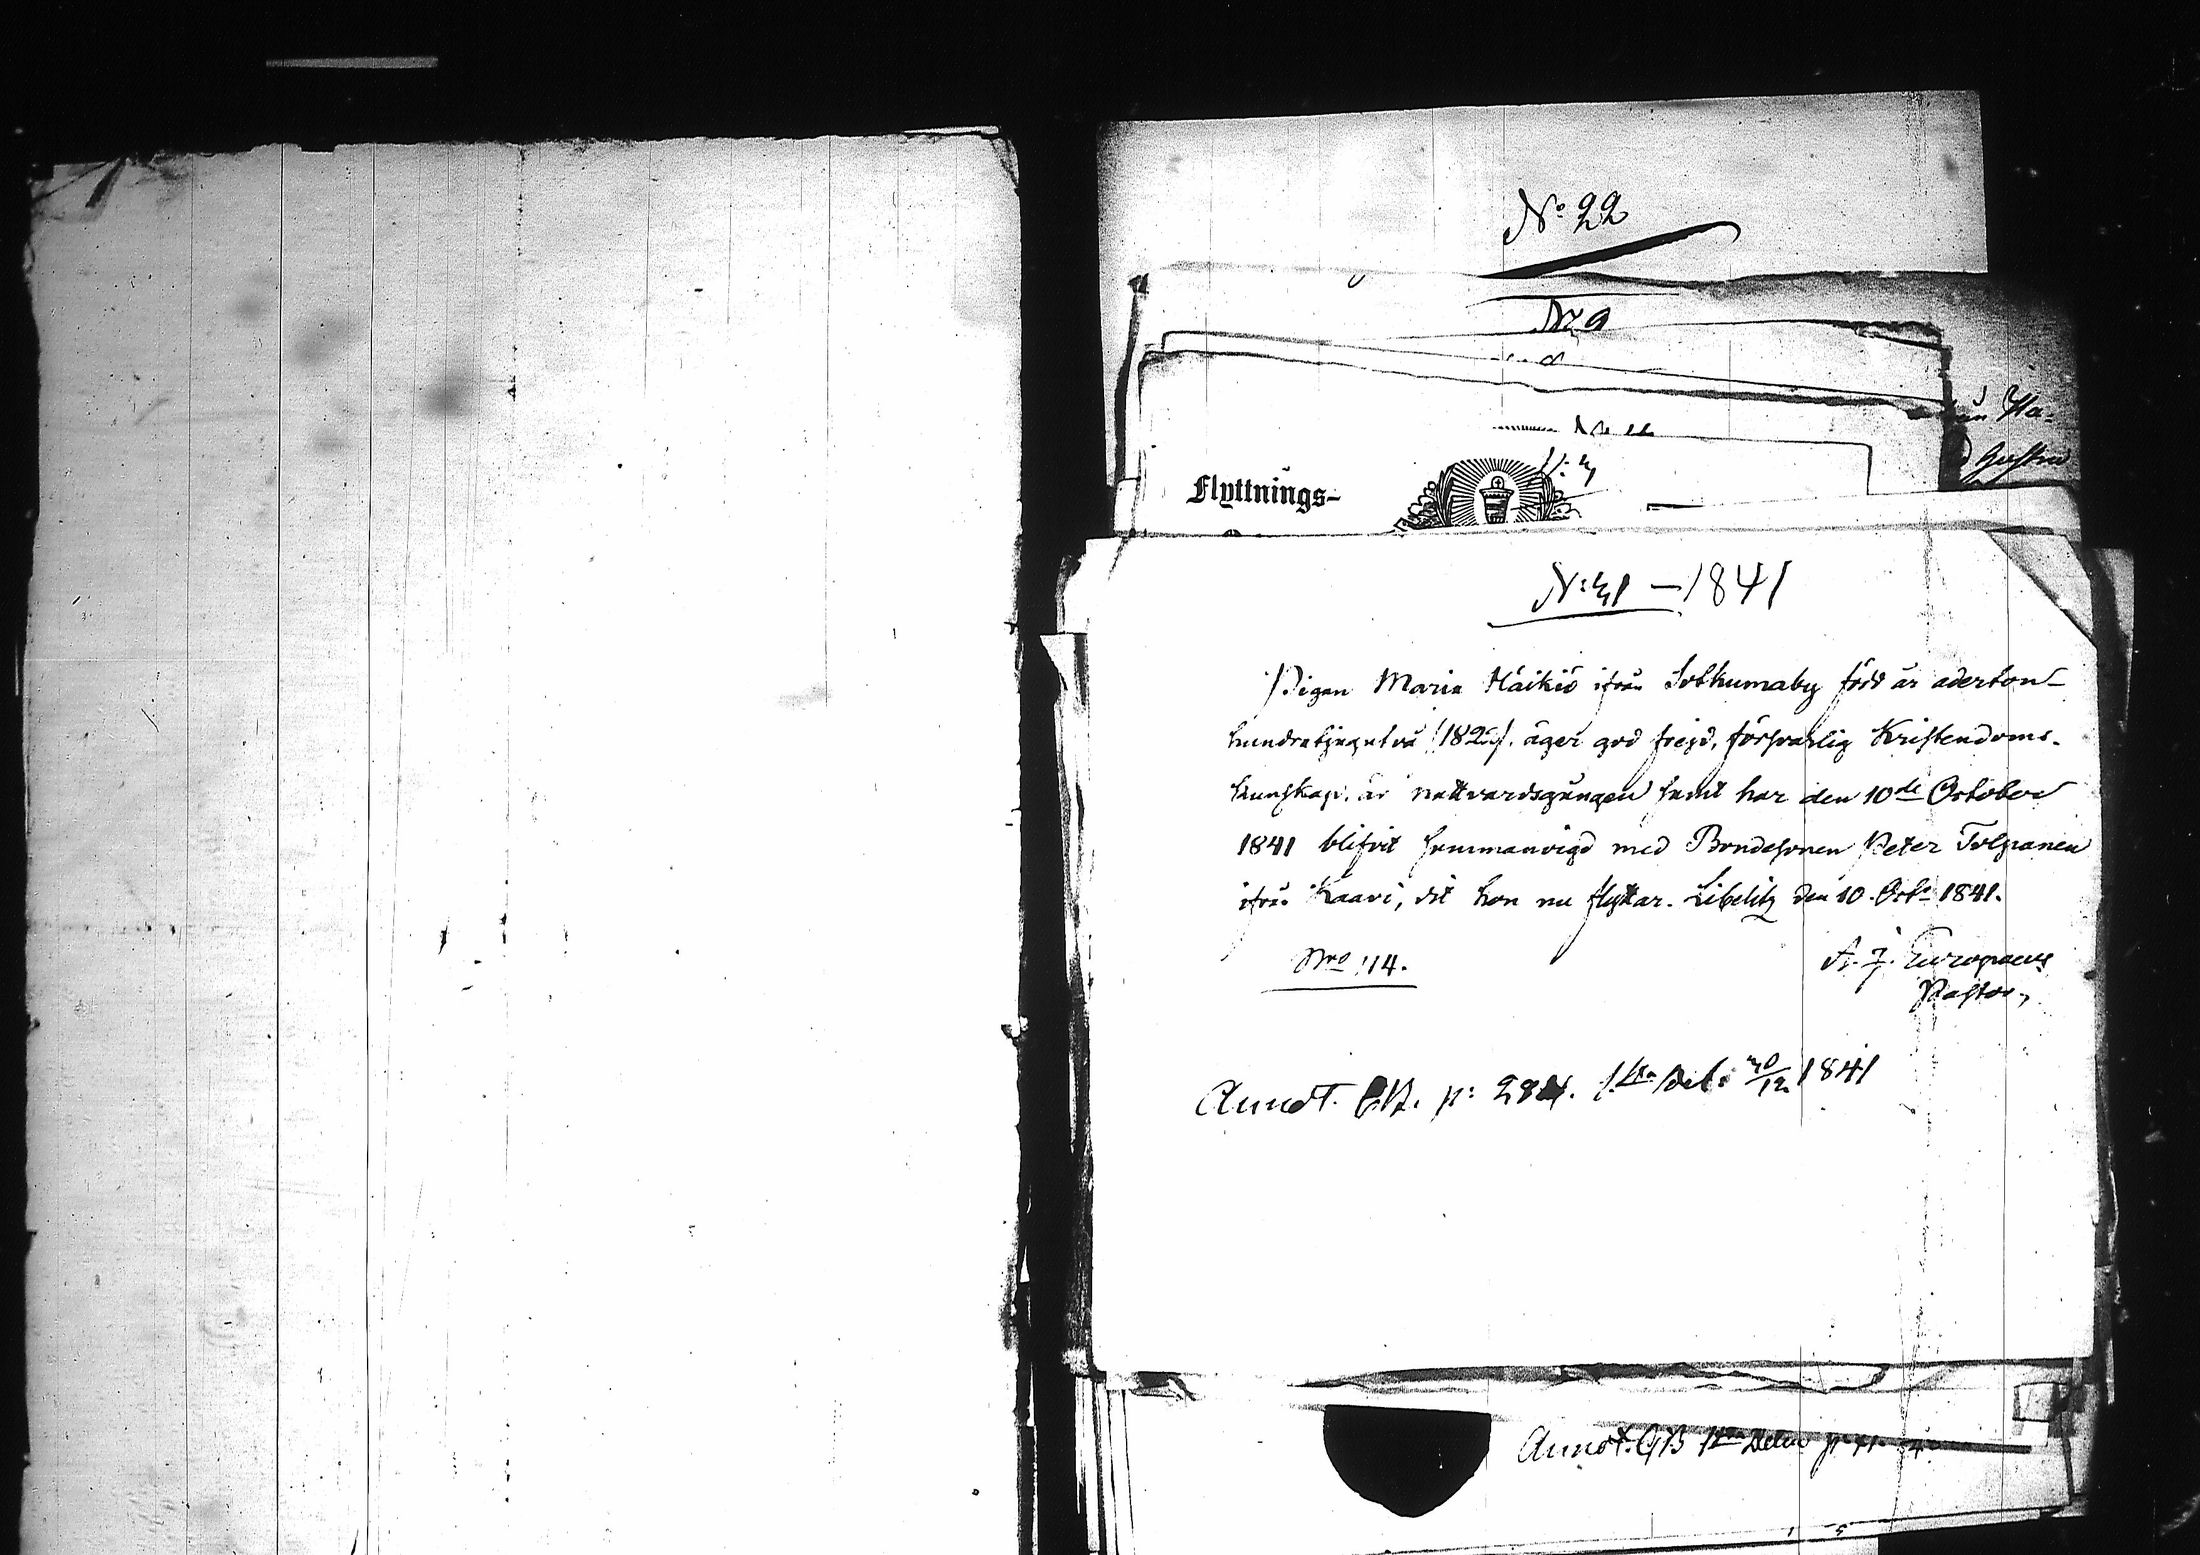 No 22
No 9
Flyttnings-
N:31 – 1841
Pigan Maria Häikiö ifrån Sotkumaby född år aderton-
hundratjugutvå (1822), äger god frejd, försvarlig Kristendoms-
kunskap, är nattvardsgången samt har den 10de October
1841 blifvit sammanvigd med Bondesonen Peter Tolpanen
ifrån Kaavi, dit hon nu flyttar. Libelitz den 10. Octr 1841.
Nro 114.
A. J. Europaeus
Pastor,
Annot. CB. p: 284. 1sta Del: 30/12 1841
Annot. CB 1sta Delen p: